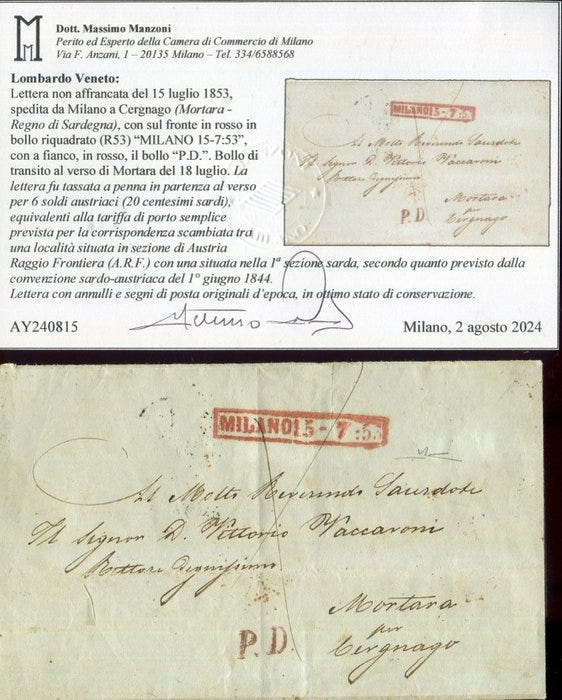 Dott. Massimo Manzoni
Perito ed Esperto della Camera di Commercio di Milano
Via F. Anzani, 1 – 20135 Milano – Tel. 334/6588568
Lombardo Veneto:
Lettera non affrancata del 15 luglio 1853,
spedita da Milano a Cergnago (Mortara -
Regno di Sardegna), con sul fronte in rosso in
bollo riquadrato (R53) “MILANO 15-7:53”,
con a fianco, in rosso, il bollo “P.D.”. Bollo di
transito al verso di Mortara del 18 luglio. La
lettera fu tassata a penna in partenza al verso
per 6 soldi austriaci (20 centesimi sardi),
equivalenti alla tariffa di porto semplice
prevista per la corrispondenza scambiata tra
una località situata in sezione di Austria
Raggio Frontiera (A.R.F.) con una situata nella 1ª sezione sarda, secondo quanto previsto dalla
convenzione sardo-austriaca del 1° giugno 1844.
Lettera con annulli e segni di posta originali d’epoca, in ottimo stato di conservazione.
AY240815
Milano, 2 agosto 2024
MILANO15-7:53
Al Molto Reverendo Sacerdote
Il Signor D. Vittorio Vaccaroni
Rettore Degnissimo
Mortara
per
Cergnago
P.D.
MILANO15-7:53
Al Molto Reverendo Sacerdote
Il Signor D. Vittorio Vaccaroni
Rettore Degnissimo
Mortara
per
Cergnago
P.D.